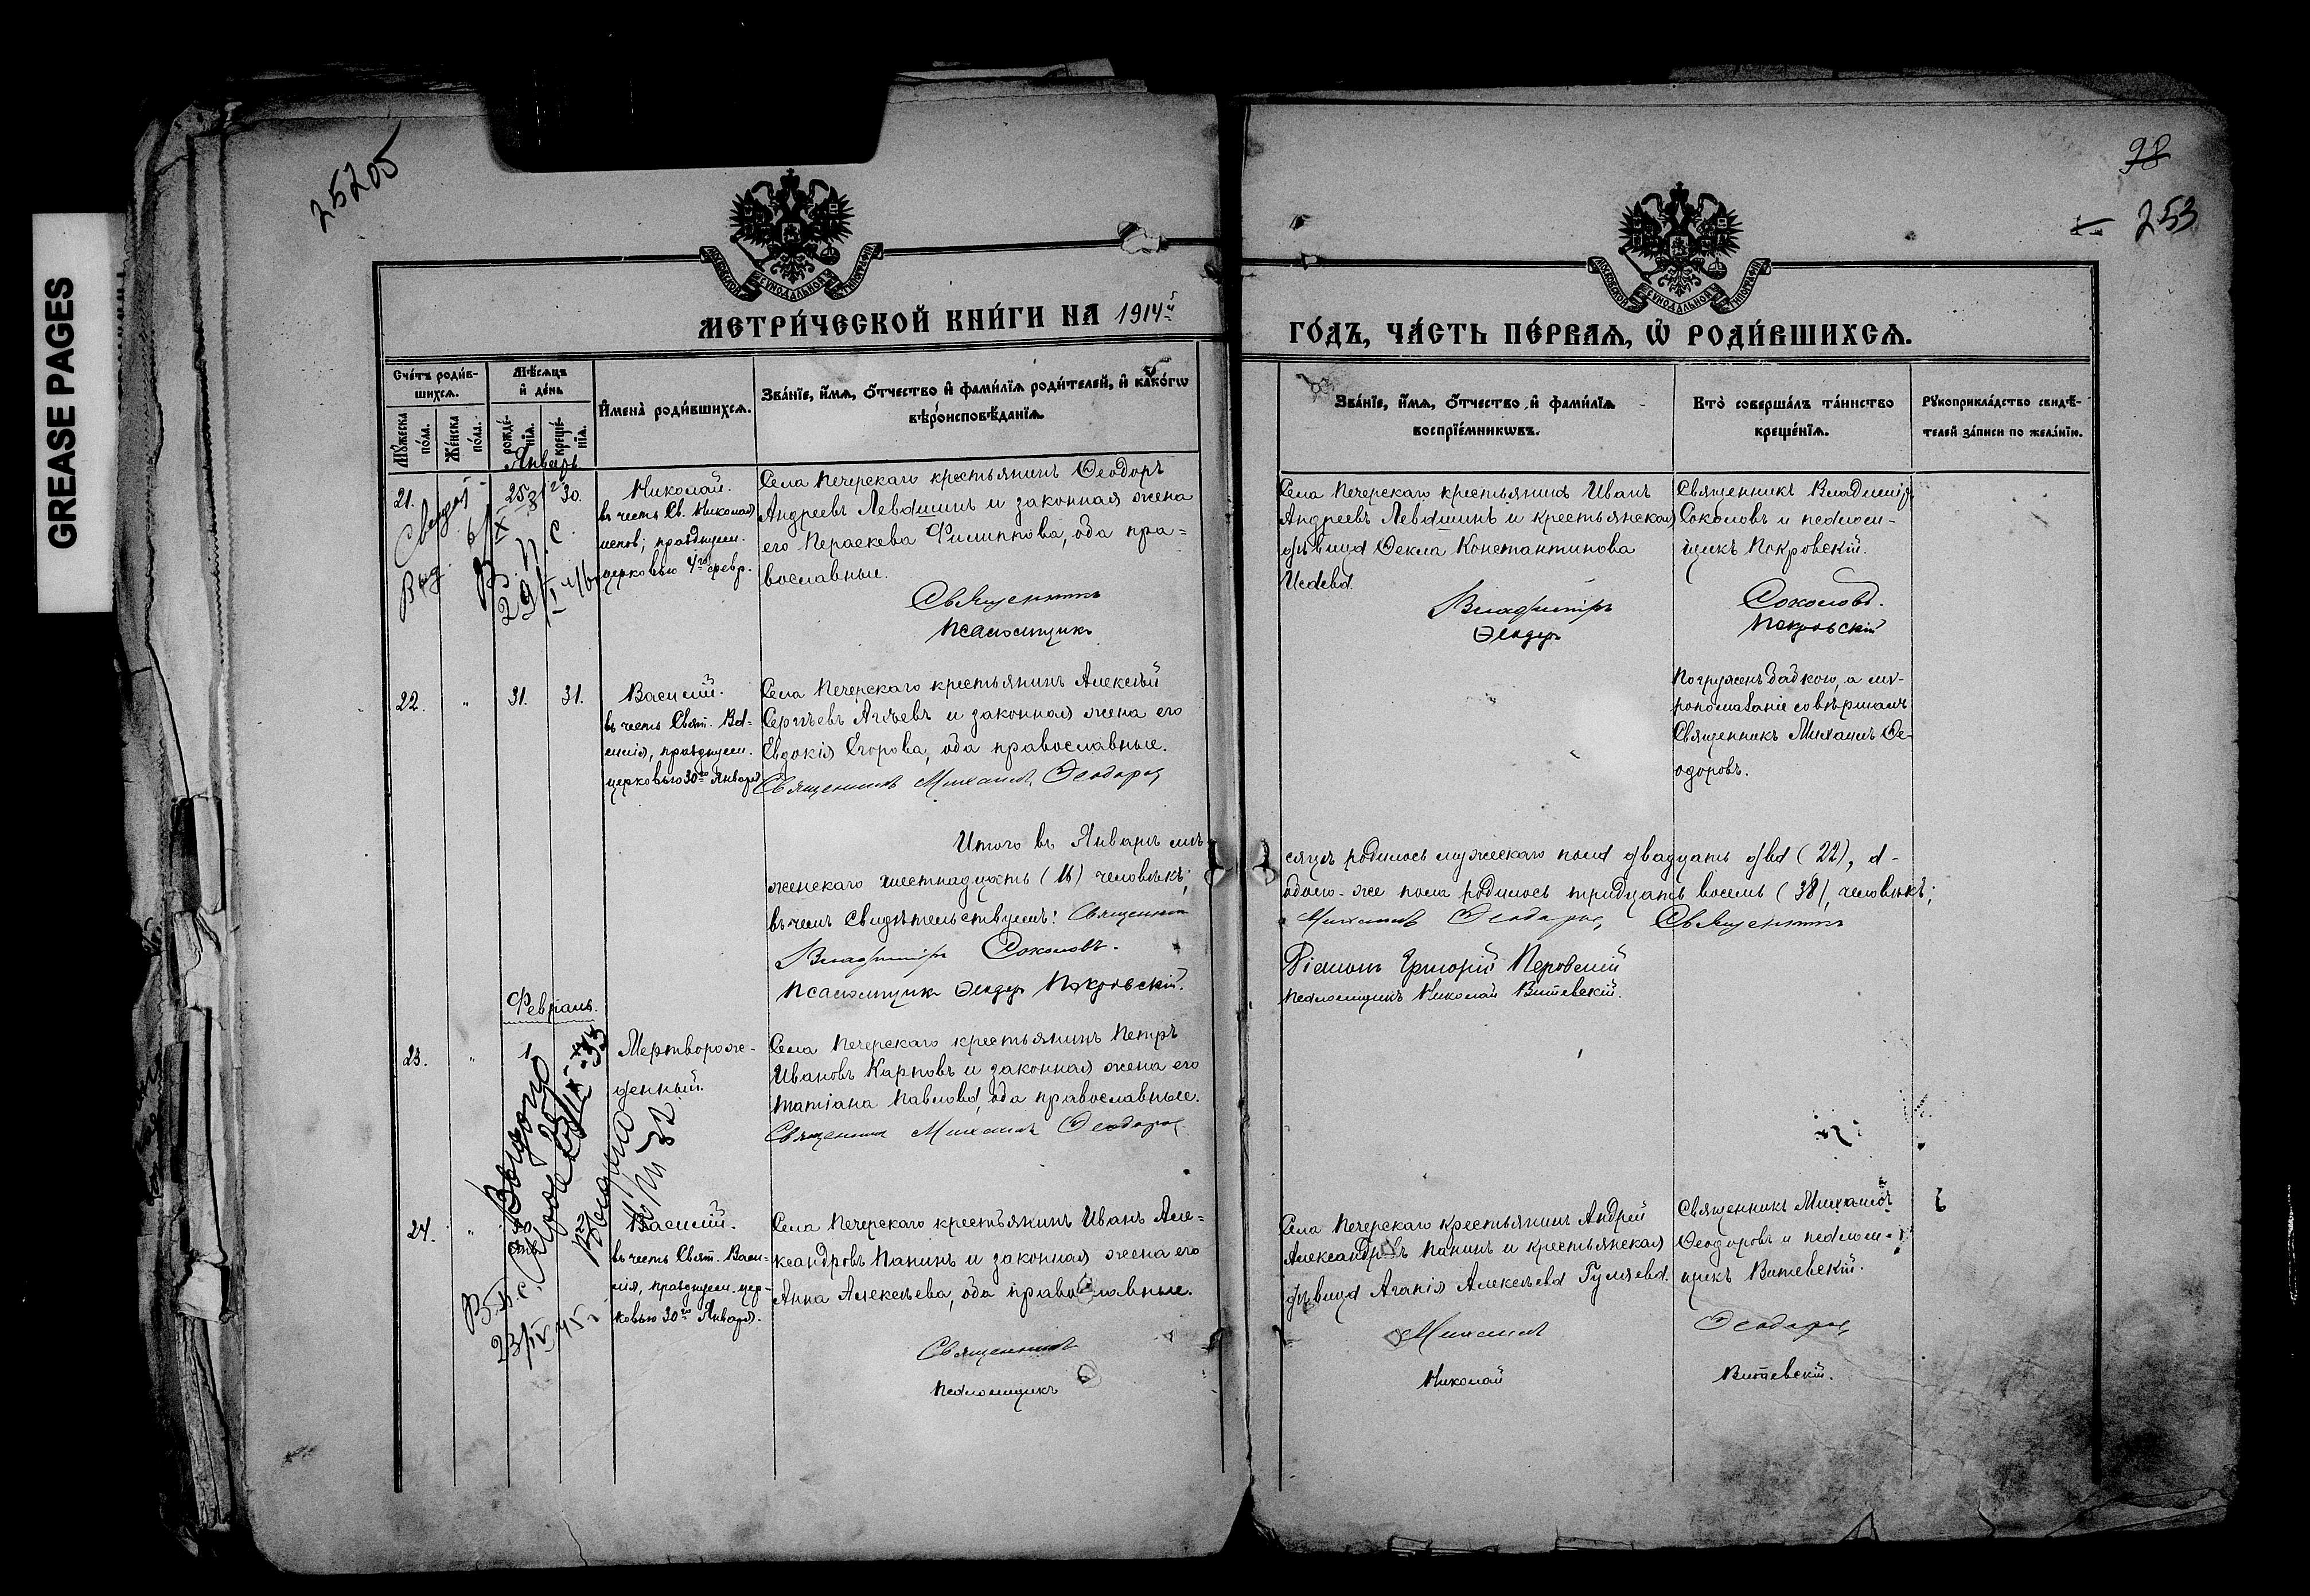 GREASE PAGES
25205
98
253
МОСКОВСКОЙ СУНОДАЛЬНОЙ ТИПОГРАФІИ
МОСКОВСКОЙ СУНОДАЛЬНОЙ ТИПОГРАФІИ
МЕТРИ́ЧЕСКОЙ КНИ́ГИ НА 1914й
ГО́ДЪ, ЧА́СТЬ ПЕ́РВАѦ, Ѡ҆ РОДИ́ВШИХСѦ.
Сче́тъ роди́в-
шихсѧ.
Мꙋ́жеска
по́ла.
Же́нска
по́ла.
Мѣ́сѧцъ
и҆ де́нь
рожде́-
нїѧ.
креще́-
нїѧ.
И҆мена̀ роди́вшихсѧ.
Зва́нїе, и҆́мѧ, ѻ҆́тчество и҆ фами́лїѧ роди́телей, и҆ како́гѡ
вѣроисповѣ́данїѧ.
Зва́нїе, и҆́мѧ, ѻ҆́тчество и҆ фами́лїѧ
воспрїе́мникѡвъ.
Кто̀ соверша́лъ та́инство
креще́нїѧ.
Рꙋкоприкла́дство свидѣ́-
телей за́писи по жела́нїю.
Январь
21.
25
30.
Николай.
въ честь Св. Николая
испов; празднуем.
церковью 4го февр.
Села Печерскаго крестьянинъ Ѳеодоръ
Андреевъ Левашинъ и законная жена
его Параскева Филиппова, оба пра=
вославные.
Священникъ
Псаломщикъ
Села Печерскаго крестьянинъ Иванъ
Андреевъ Левашинъ и крестьянская
дѣвица Ѳекла Константинова
Исаева.
Владиміръ
Ѳеодоръ
Священникъ Владиміръ
Соколовъ и псалом-
щикъ Покровскій.
Соколовъ.
Покровскій
22.
"
31.
31.
Василій.
въ честь Свят. Ва-
силія, празднуем.
церковью 30го Января
Села Печерскаго крестьянинъ Алексѣй
Сергѣевъ Агѣевъ и законная жена его
Евдокія Егорова, оба православные.
Священникъ Михаилъ Ѳеодоровъ
Погруженъ бабкою, а мѵ-
ропомазаніе совѣршалъ
Священникъ Михаилъ Ѳе-
одоровъ.
Итого въ Январѣ мѣ-
сяцѣ родилось мужескаго пола двадцать два (22), а-
женскаго шестнадцать (16) человѣкъ;
обоего-же пола родилось тридцать восемь (38), человѣкъ;
въ чемъ свидѣтельствуемъ: Священникъ
Михаилъ Ѳеодоровъ, Священникъ
Владиміръ Соколовъ.
Діаконъ Григорій Перовскій
Псаломщикъ Ѳеодоръ Покровскій.
Псаломщикъ Николай Витевскій.
Февраль.
23.
"
1
Мертворож-
денный.
Села Печерскаго крестьянинъ Петръ
Ивановъ Карповъ и законная жена его
Татіана Павлова, оба православные.
Священникъ Михаилъ Ѳеодоровъ
24.
"
Василій.
въ честь Свят. Васи-
лія, празднуем. цер-
ковью 30го Января.
Села Печерскаго крестьянинъ Иванъ Але=
ксандровъ Панинъ и законная жена его
Анна Алексѣева, оба православные.
Священникъ
Псаломщикъ
Села Печерскаго крестьянинъ Андрей
Александровъ Панинъ и крестьянская
дѣвица Агапія Алексѣева Гуляева.
Михаилъ
Николай
Священникъ Михаилъ
Ѳеодоровъ и псалом-
щикъ Витевскій.
Ѳеодоровъ
Витевскій.